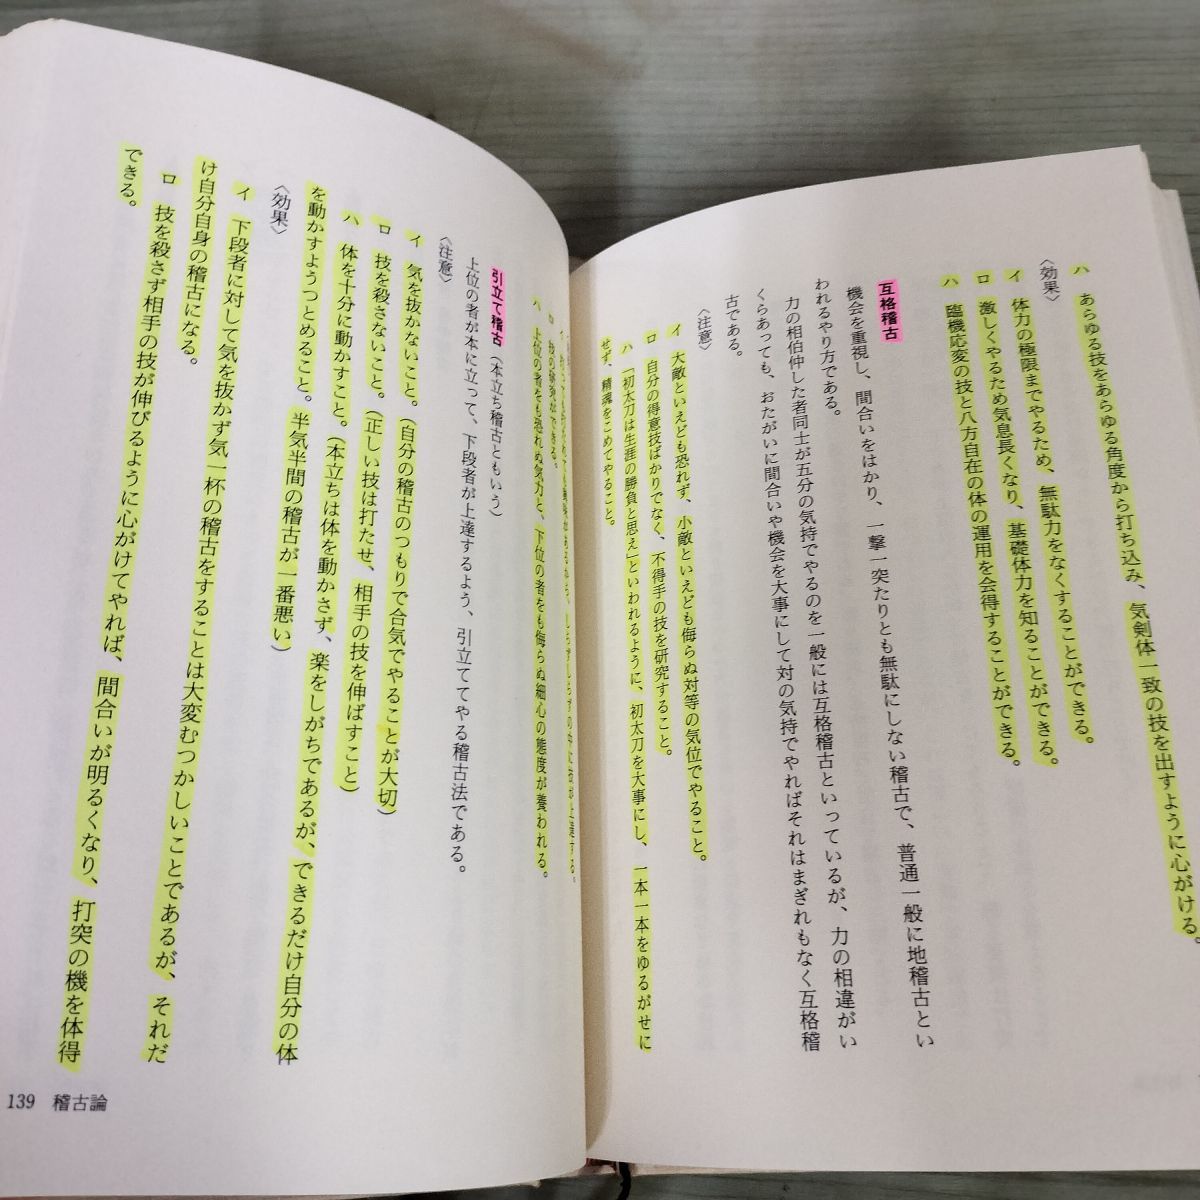 ハ あらゆる技をあらゆる角度から打ち込み、気剣体一致の技を出すように心がける。
〈効果〉
イ 体力の極限までやるため、無駄力をなくすることができる。
ロ 激しくやるため気息長くなり、基礎体力を知ることができる。
ハ 臨機応変の技と八方自在の体の運用を会得することができる。
互格稽古
機会を重視し、間合いをはかり、一撃一突たりとも無駄にしない稽古で、普通一般に地稽古とい
われるやり方である。
力の相伯仲した者同士が五分の気持でやるのを一般には互格稽古といっているが、力の相違がい
くらあっても、おたがいに間合いや機会を大事にして対の気持でやればそれはまぎれもなく互格稽
古である。
〈注意〉
イ 大敵といえども恐れず、小敵といえども侮らぬ対等の気位でやること。
ロ 自分の得意技ばかりでなく、不得手の技を研究すること。
ハ 「初太刀は生涯の勝負と思え」といわれるように、初太刀を大事にし、一本一本をゆるがせに
せず、精魂をこめてやること。
しらずしらずの中に技が上達する。
ロ 技の研究ができる。
ハ 上位の者をも恐れぬ気力と、下位の者をも侮らぬ細心の態度が養われる。
引立て稽古（本立ち稽古ともいう）
上位の者が本に立って、下段者が上達するよう、引立ててやる稽古法である。
〈注意〉
イ 気を抜かないこと。（自分の稽古のつもりで合気でやることが大切）
ロ 技を殺さないこと。（正しい技は打たせ、相手の技を伸ばすこと）
ハ 体を十分に動かすこと。（本立ちは体を動かさず、楽をしがちであるが、できるだけ自分の体
を動かすようつとめること。半気半間の稽古が一番悪い）
〈効果〉
イ 下段者に対して気を抜かず気一杯の稽古をすることは大変むつかしいことであるが、それだ
け自分自身の稽古になる。
ロ 技を殺さず相手の技が伸びるように心がけてやれば、間合いが明るくなり、打突の機を体得
できる。
139 稽古論